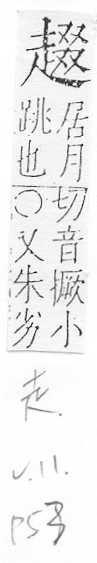 居月切音撅小
跳也〇又朱劣
走.
V.11.